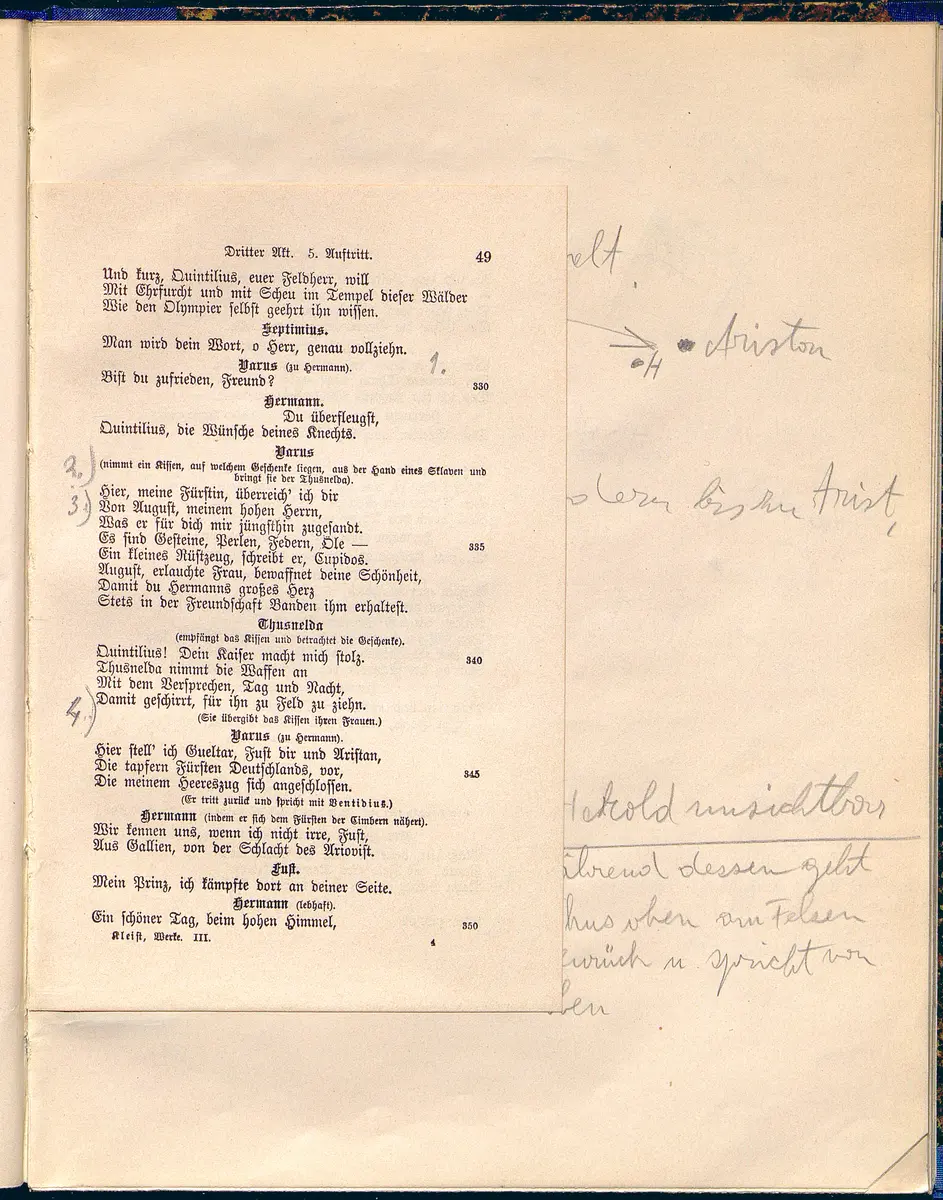 Dritter Akt. 5. Auftritt. 49
Und kurz, Quintilius, euer Feldherr, will
Mit Ehrfurcht und mit Scheu im Tempel dieser Wälder
Wie den Olympier selbst geehrt ihn wissen.
Septimius.
Man wird dein Wort, o Herr, genau vollziehn.
Varus (zu Hermann). 1.
Bist du zufrieden, Freund? 330
Hermann.
Du überfleugst,
Quintilius, die Wünsche deines Knechts.
Varus
2.)
(nimmt ein Kissen, auf welchem Geschenke liegen, aus der Hand eines Sklaven und
bringt sie der Thusnelda).
3.) Hier, meine Fürstin, überreich' ich dir
Von August, meinem hohen Herrn,
Was er für dich mir jüngsthin zugesandt.
Es sind Gesteine, Perlen, Federn, Öle — 335
Ein kleines Rüstzeug, schreibt er, Cupidos.
August, erlauchte Frau, bewaffnet deine Schönheit,
Damit du Hermanns großes Herz
Stets in der Freundschaft Banden ihm erhaltest.
Thusnelda
(empfängt das Kissen und betrachtet die Geschenke).
Quintilius! Dein Kaiser macht mich stolz. 340
Thusnelda nimmt die Waffen an
Mit dem Versprechen, Tag und Nacht,
4.) Damit geschirrt, für ihn zu Feld zu ziehn.
(Sie übergibt das Kissen ihren Frauen.)
Varus (zu Hermann).
Hier stell' ich Gueltar, Fust dir und Aristan,
Die tapfern Fürsten Deutschlands, vor, 345
Die meinem Heereszug sich angeschlossen.
(Er tritt zurück und spricht mit Ventidius.)
Hermann (indem er sich dem Fürsten der Cimbern nähert).
Wir kennen uns, wenn ich nicht irre, Fust,
Aus Gallien, von der Schlacht des Ariovist.
Fust.
Mein Prinz, ich kämpfte dort an deiner Seite.
Hermann (lebhaft).
Ein schöner Tag, beim hohen Himmel, 350
Kleist, Werke. III. 4
elt
Ariston
H
dern bis zu Arist,
unsichtbar
ährend dessen geht
hus oben am Felsen
zurück u. spricht von
ben